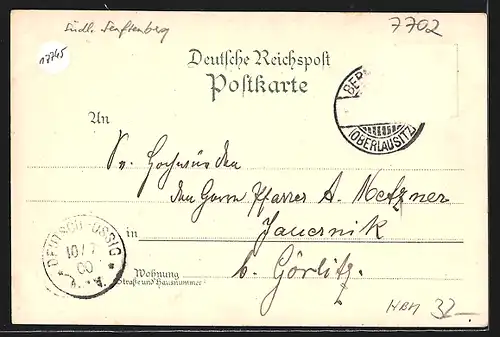 Südl. Senftenberg
7702
17745
Deutsche Reichspost
Postkarte
BER
(OBERLAUSITZ)
An
Sr. Hochwürden
den Herrn Pfarrer A. Metzner
in Jauernik
b. Görlitz.
DEUTSCH OSSIG
10/7
00
Wohnung
(Straße und Hausnummer)
HBM 32.-